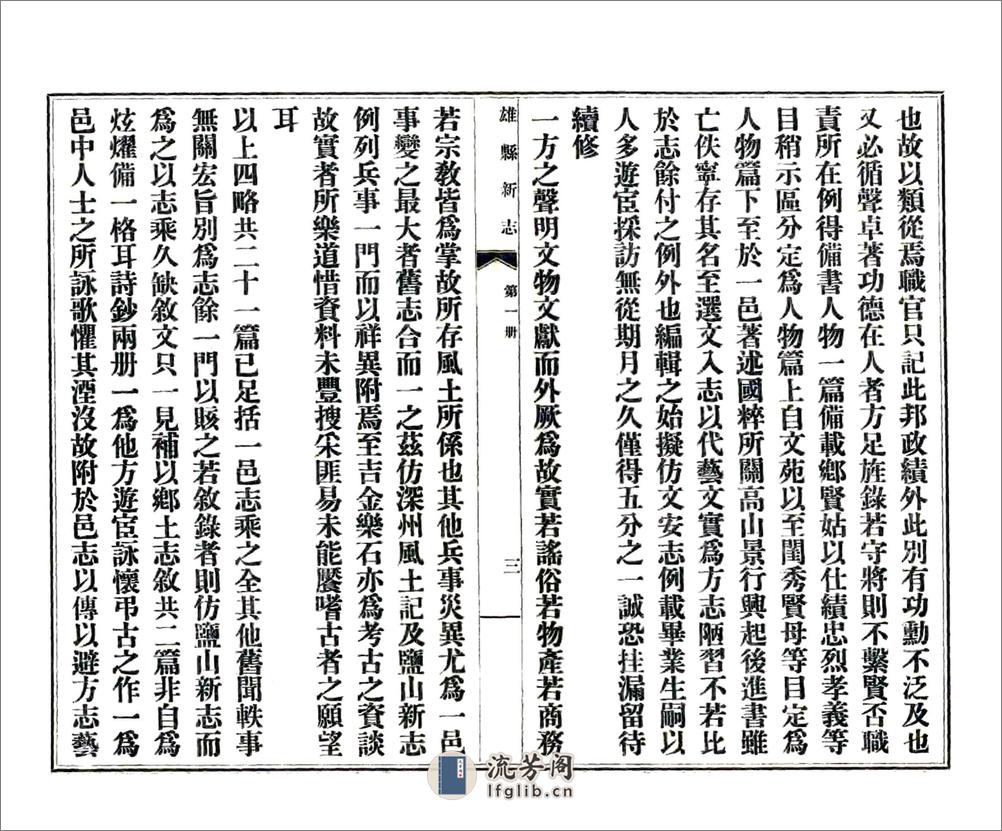 也故以類從焉職官只記此邦政績外此別有功勳不泛及也
又必循聲卓著功德在人者方足旌錄若守將則不繫賢否職
責所在例得備書人物一篇備載鄉賢姑以仕績忠烈孝義等
目稍示區分定爲人物篇上自文苑以至閨秀賢母等目定爲
人物篇下至於一邑著述國粹所關高山景行興起後進書雖
亡佚寧存其名至選文入志以代藝文實爲方志陋習不若比
於志餘付之例外也編輯之始擬仿文安志例載畢業生嗣以
人多遊宦採訪無從期月之久僅得五分之一誠恐挂漏留待
續修
一方之聲明文物文獻而外厥爲故實若謠俗若物產若商務
雄縣新志 第一册 三
若宗教皆爲掌故所存風土所係也其他兵事災異尤爲一邑
事變之最大者舊志合而一之茲仿深州風土記及鹽山新志
例列兵事一門而以祥異附焉至吉金樂石亦爲考古之資談
故實者所樂道惜資料未豐搜采匪易未能饜嗜古者之願望
耳
以上四略共二十一篇已足括一邑志乘之全其他舊聞軼事
無關宏旨別爲志餘一門以賅之若敘錄者則仿鹽山新志而
爲之以志乘久缺敘文只一見補以鄉土志敘共二篇非自爲
炫燿備一格耳詩鈔兩册一爲他方遊宦詠懷弔古之作一爲
邑中人士之所詠歌懼其湮沒故附於邑志以傳以避方志藝
流芳阁
lfglib.cn